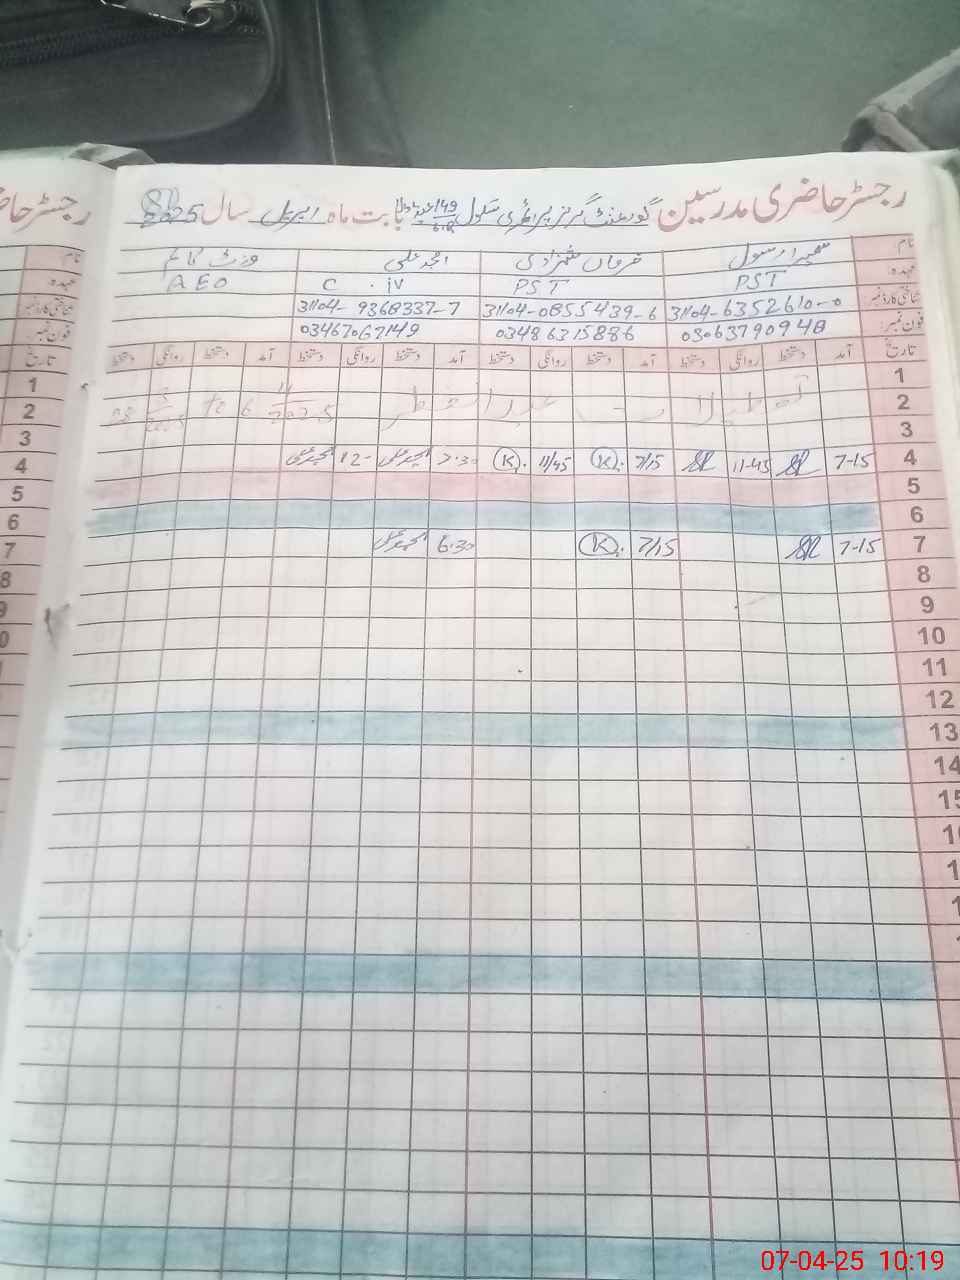 رجسٹر حاضری مدرسین گورنمنٹ گرلز پرائمری سکول 149 6.R بابت ماہ اپریل سال 2025
نام رسول فرمان شہزادی امجد علی وزٹ کالم
عہدہ PST PST C. iv AEO
شناختی کارڈ نمبر 31104-6352610-0 31104-0855439-6 31104-9368337-7
فون نمبر: 03063790948 03486315886 03467067149
تاریخ آمد دستخط روانگی دستخط آمد دستخط روانگی دستخط آمد دستخط روانگی دستخط آمد دستخط روانگی دستخط
1
2 تعطیلات عید الفطر
3
4 7-15 11-45 7/15 K. 11/45 K. 7.30 امجد علی 12- امجد علی
5
6
7 7-15 7/15 K. 6.30 امجد علی
8
9
10
11
12
13
14
15
رجسٹر حاضر
نام
عہدہ
شناختی کارڈ نمبر
فون نمبر:
تاریخ
1
2
3
4
5
6
7
8
9
07-04-25 10:19